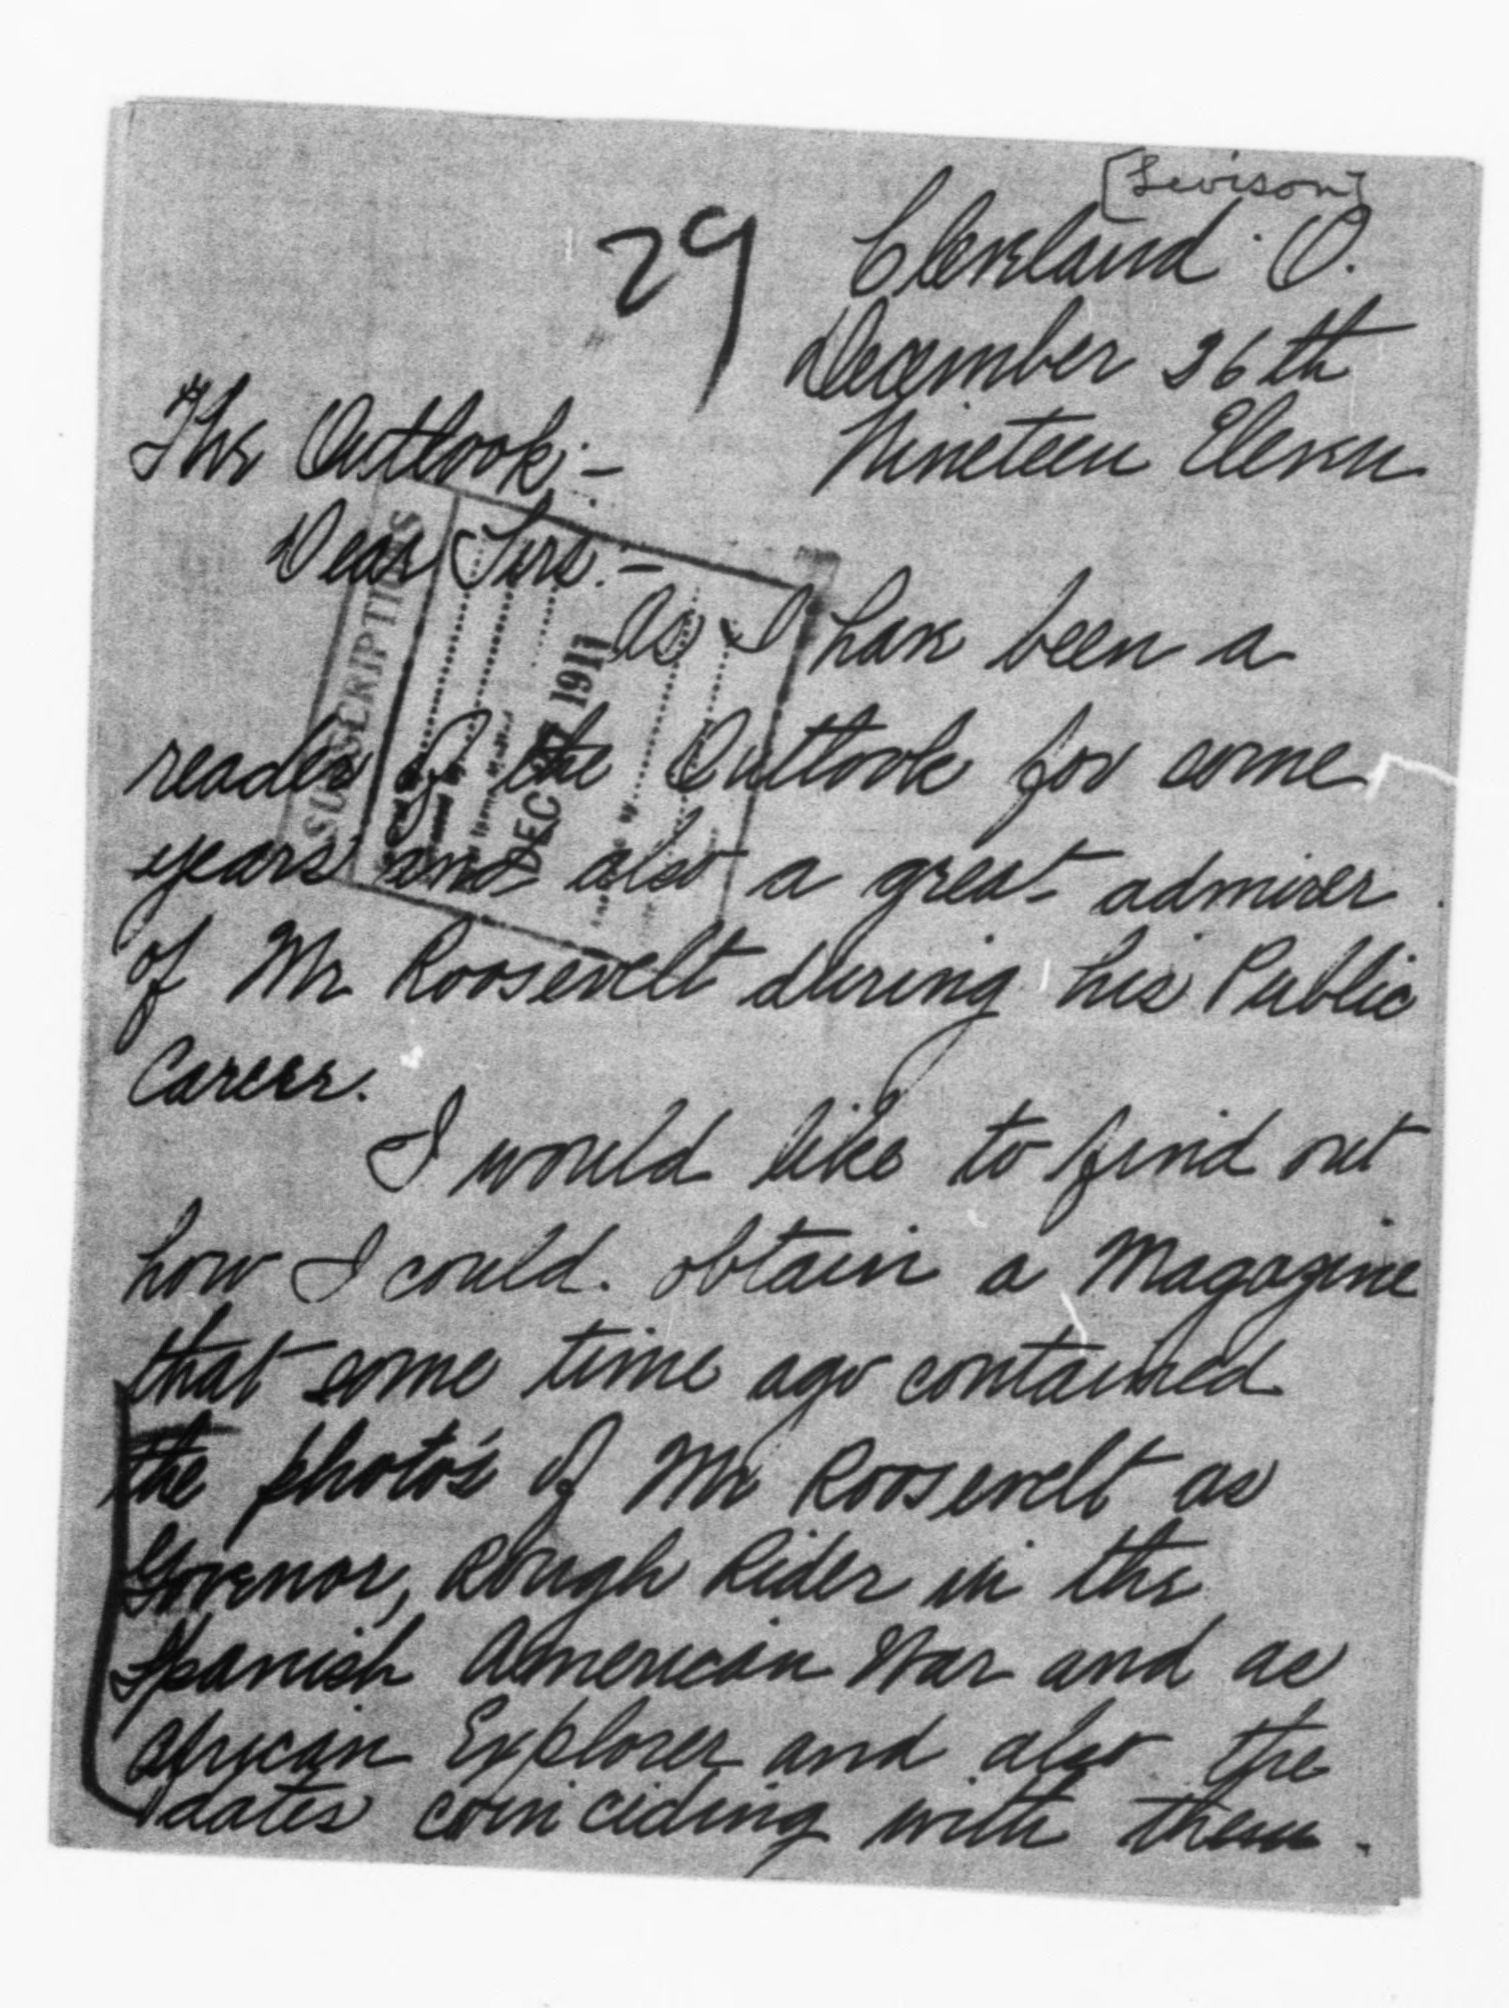 [Levison]
29
Cleveland O.
December 26th
Nineteen Eleven
The Outlook:-
Dear Sirs:-
As I have been a
reader of the Outlook for some
years and also a great admirer
of Mr Roosevelt during his Public
Career.
I would like to find out
how I could. obtain a Magazine
that some time ago contained
the photo's of Mr Roosevelt as
Govenor, Rough Rider in the
Spanish American War and as
African Explorer and also the
dates coinciding with them.
SUBSCRIPTIONS
DEC 27 1911